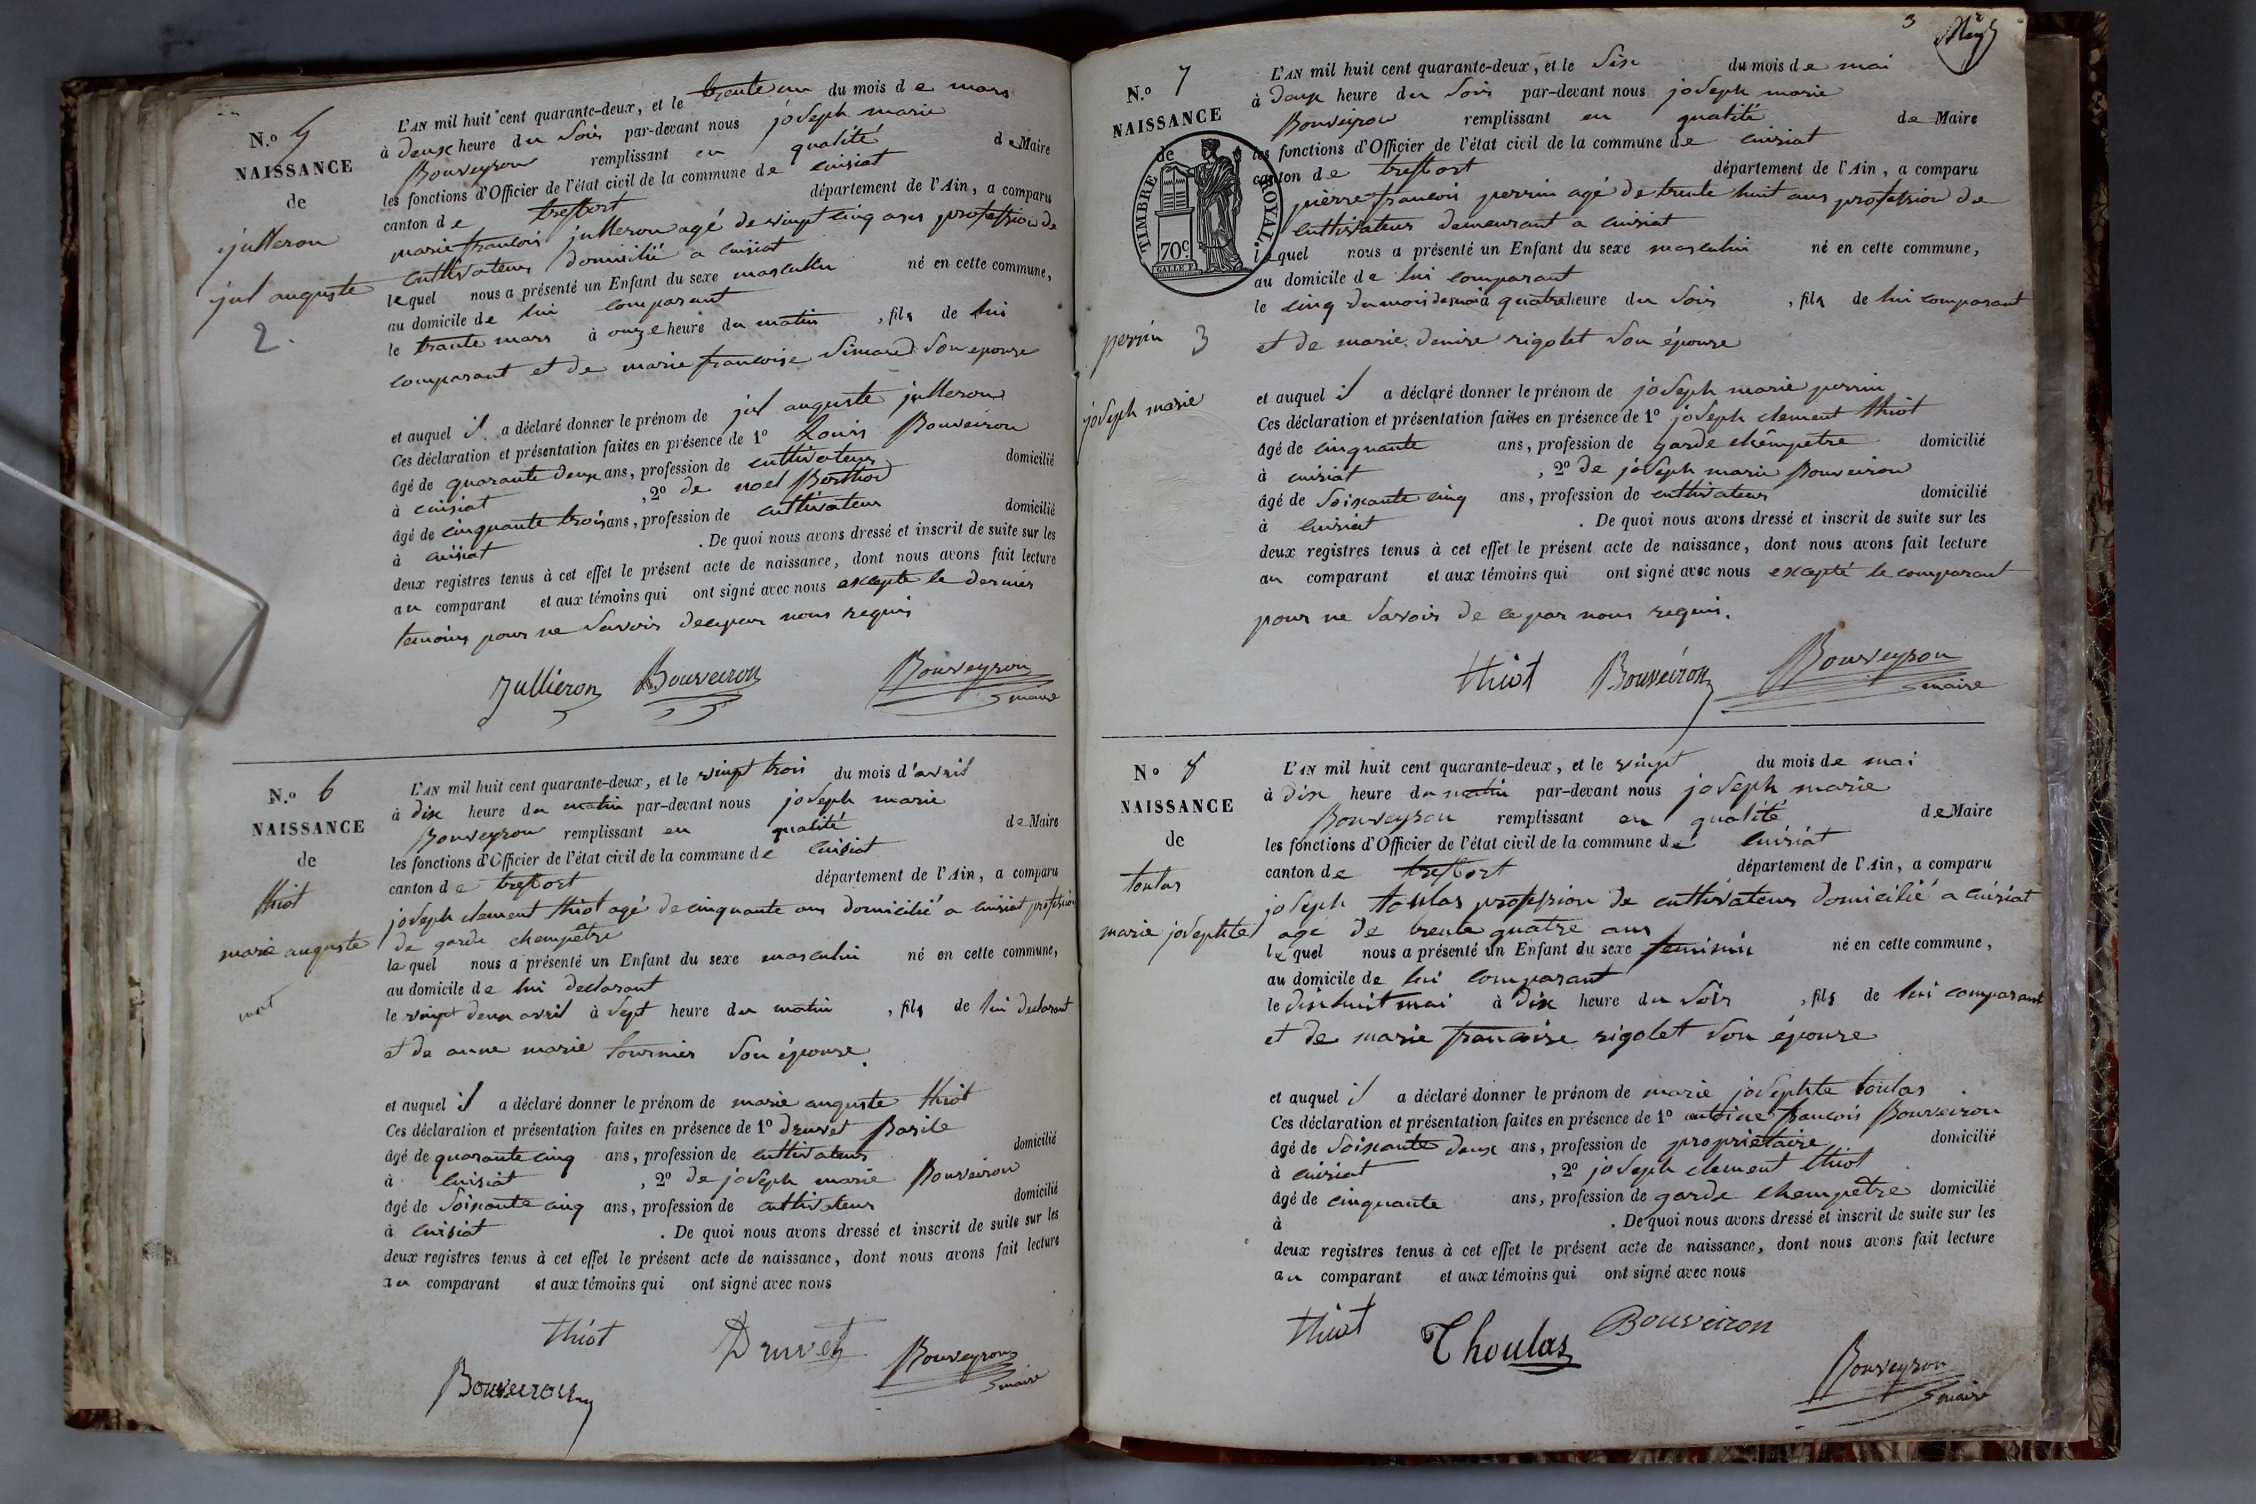 N.o 5
NAISSANCE
de
julleron
jul auguste
2.
L'AN mil huit cent quarante-deux, et le trente un du mois de mars
à deux heure du soir par-devant nous joseph marie
Bouveyron remplissant en qualité de Maire
les fonctions d'Officier de l'état civil de la commune de cuisiat
canton de treffort département de l'Ain, a comparu
marie françois julleron agé de vingt cinq ans profession de
cultivateur domicilié a cuisiat
lequel nous a présenté un Enfant du sexe masculin né en cette commune,
au domicile de lui comparant
le trante mars à onze heure du matin, fils de lui
comparant et de marie francoise Simard son epouse
et auquel il a déclaré donner le prénom de jul auguste julleron
Ces déclaration et présentation faites en présence de 1º Louis Bouveiron
âgé de quarante deux ans, profession de cultivateur domicilié
à cuisiat, 2º de noel Berthod
âgé de cinquante trois ans, profession de cultivateur domicilié
à cuisiat. De quoi nous avons dressé et inscrit de suite sur les
deux registres tenus à cet effet le présent acte de naissance, dont nous avons fait lecture
au comparant et aux témoins qui ont signé avec nous excepte le dernier
temoins pour ne savoir de ce par nous requis
Jullieron Bouveiron Bouveyron
maire
N.o 6
NAISSANCE
de
thiot
marie auguste
mort
L'AN mil huit cent quarante-deux, et le vingt trois du mois d'avril
à dix heure du matin par-devant nous joseph marie
Bouveyron remplissant en qualité de Maire
les fonctions d'Officier de l'état civil de la commune de Cuisiat
canton de treffort département de l'Ain, a comparu
joseph clement thiot agé de cinquante ans domicilié a cuisiat profession
de garde chempêtre
lequel nous a présenté un Enfant du sexe masculin né en cette commune,
au domicile de lui declarant
le vingt deux avril à sept heure du matin, fils de lui declarant
et de anne marie tournier son épouse.
et auquel il a déclaré donner le prénom de marie auguste thiot
Ces déclaration et présentation faites en présence de 1º druvet Basile
âgé de quarante cinq ans, profession de cultivateur domicilié
à cuisiat, 2º de joseph marie Bouveiron
âgé de soixante cinq ans, profession de cultivateur domicilié
à cuisiat. De quoi nous avons dressé et inscrit de suite sur les
deux registres tenus à cet effet le présent acte de naissance, dont nous avons fait lecture
au comparant et aux témoins qui ont signé avec nous
thiot Druvet Bouveyron
maire
Bouveiron
3
N.o 7
NAISSANCE
de
TIMBRE ROYAL.
70c.
perrin 3
joseph marie
L'AN mil huit cent quarante-deux, et le six du mois de mai
à deux heure du soir par-devant nous joseph marie
Bouveyron remplissant en qualité de Maire
les fonctions d'Officier de l'état civil de la commune de cuisiat
canton de treffort département de l'Ain, a comparu
pierre françois perrin agé de trente huit ans profession de
cultivateur demeurant a cuisiat
lequel nous a présenté un Enfant du sexe masculin né en cette commune,
au domicile de lui comparant
le cinq du mois de mai à quatre heure du soir, fils de lui comparant
et de marie denise rigolet son épouse
et auquel il a déclaré donner le prénom de joseph marie perrin
Ces déclaration et présentation faites en présence de 1º joseph clement thiot
âgé de cinquante ans, profession de garde chêmpetre domicilié
à cuisiat, 2º de joseph marie Bouveiron
âgé de soixante cinq ans, profession de cultivateur domicilié
à cuisiat. De quoi nous avons dressé et inscrit de suite sur les
deux registres tenus à cet effet le présent acte de naissance, dont nous avons fait lecture
au comparant et aux témoins qui ont signé avec nous excepté le comparant
pour ne savoir de ce par nous requis.
thiot Bouveiron Bouveyron
maire
No 8
NAISSANCE
de
toulas
marie josephte
L'AN mil huit cent quarante-deux, et le vingt du mois de mai
à dix heure du matin par-devant nous joseph marie
Bouveyron remplissant en qualité de Maire
les fonctions d'Officier de l'état civil de la commune de Cuisiat
canton de treffort département de l'Ain, a comparu
joseph toulas profession de cultivateur domicilié a cuisiat
age de trente quatre ans
lequel nous a présenté un Enfant du sexe feminin né en cette commune,
au domicile de lui comparant
le dix huit mai à dix heure du soir, fils de lui comparant
et de marie francoise rigolet son épouse
et auquel il a déclaré donner le prénom de marie josephte toulas
Ces déclaration et présentation faites en présence de 1º antoine françois Bouveiron
âgé de soixante deux ans, profession de proprietaire domicilié
à cuisiat, 2º joseph clement thiot
âgé de cinquante ans, profession de garde chempêtre domicilié
à. De quoi nous avons dressé et inscrit de suite sur les
deux registres tenus à cet effet le présent acte de naissance, dont nous avons fait lecture
au comparant et aux témoins qui ont signé avec nous
thiot Thoulas Bouveiron
Bouveyron
maire